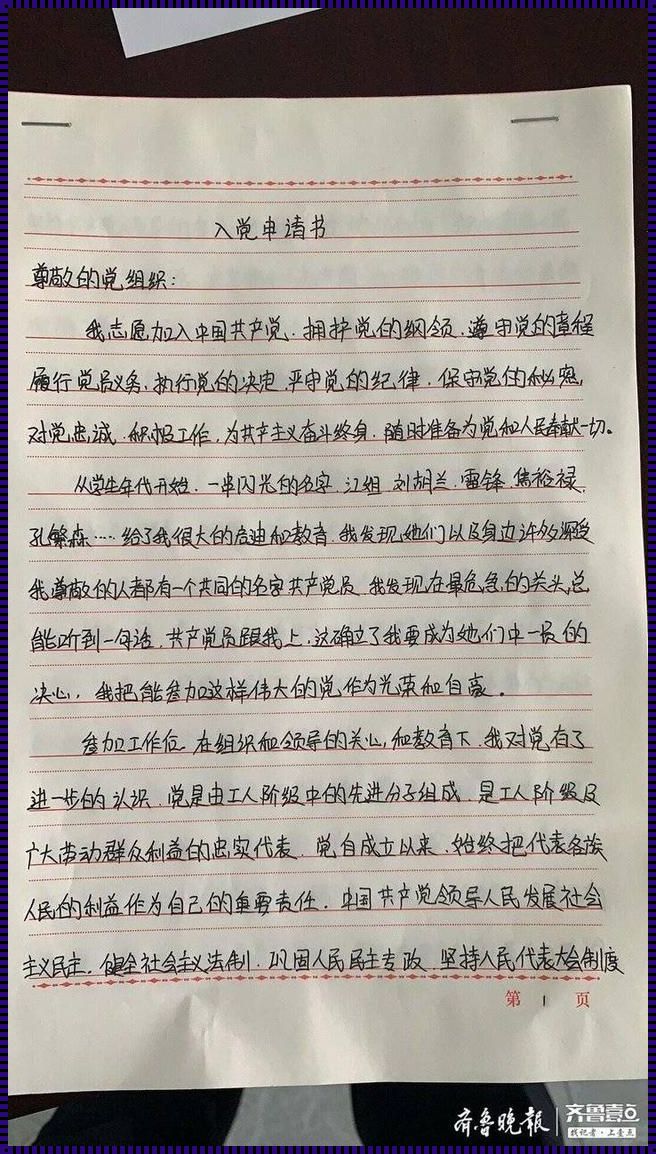 入党申请书
尊敬的党组织：
我志愿加入中国共产党，拥护党的纲领，遵守党的章程
履行党员义务，执行党的决定，严守党的纪律，保守党的秘密，
对党忠诚，积极工作，为共产主义奋斗终身，随时准备为党和人民奉献一切。
从学生年代开始，一串闪光的名字，江姐，刘胡兰，雷锋，焦裕禄，
孔繁森……给了我很大的启迪和教育，我发现她们以及身边许多深受
我尊敬的人都有一个共同的名字共产党员，我发现在最危急的关头，总
能听到一句话，共产党员跟我上，这确立了我要成为她们中一员的
决心，我把能参加这样伟大的党作为光荣和自豪。
参加工作后，在组织和领导的关心，和教育下，我对党有了
进一步的认识，党是由工人阶级中的先进分子组成，是工人阶级及
广大劳动群众利益的忠实代表，党自成立以来，始终把代表各族
人民的利益作为自己的重要责任，中国共产党领导人民发展社会
主义民主，健全社会主义法制，巩固人民民主专政，坚持人民代表大会制度
第 1 页
齐鲁晚报 齐鲁壹点
找记者·上壹点